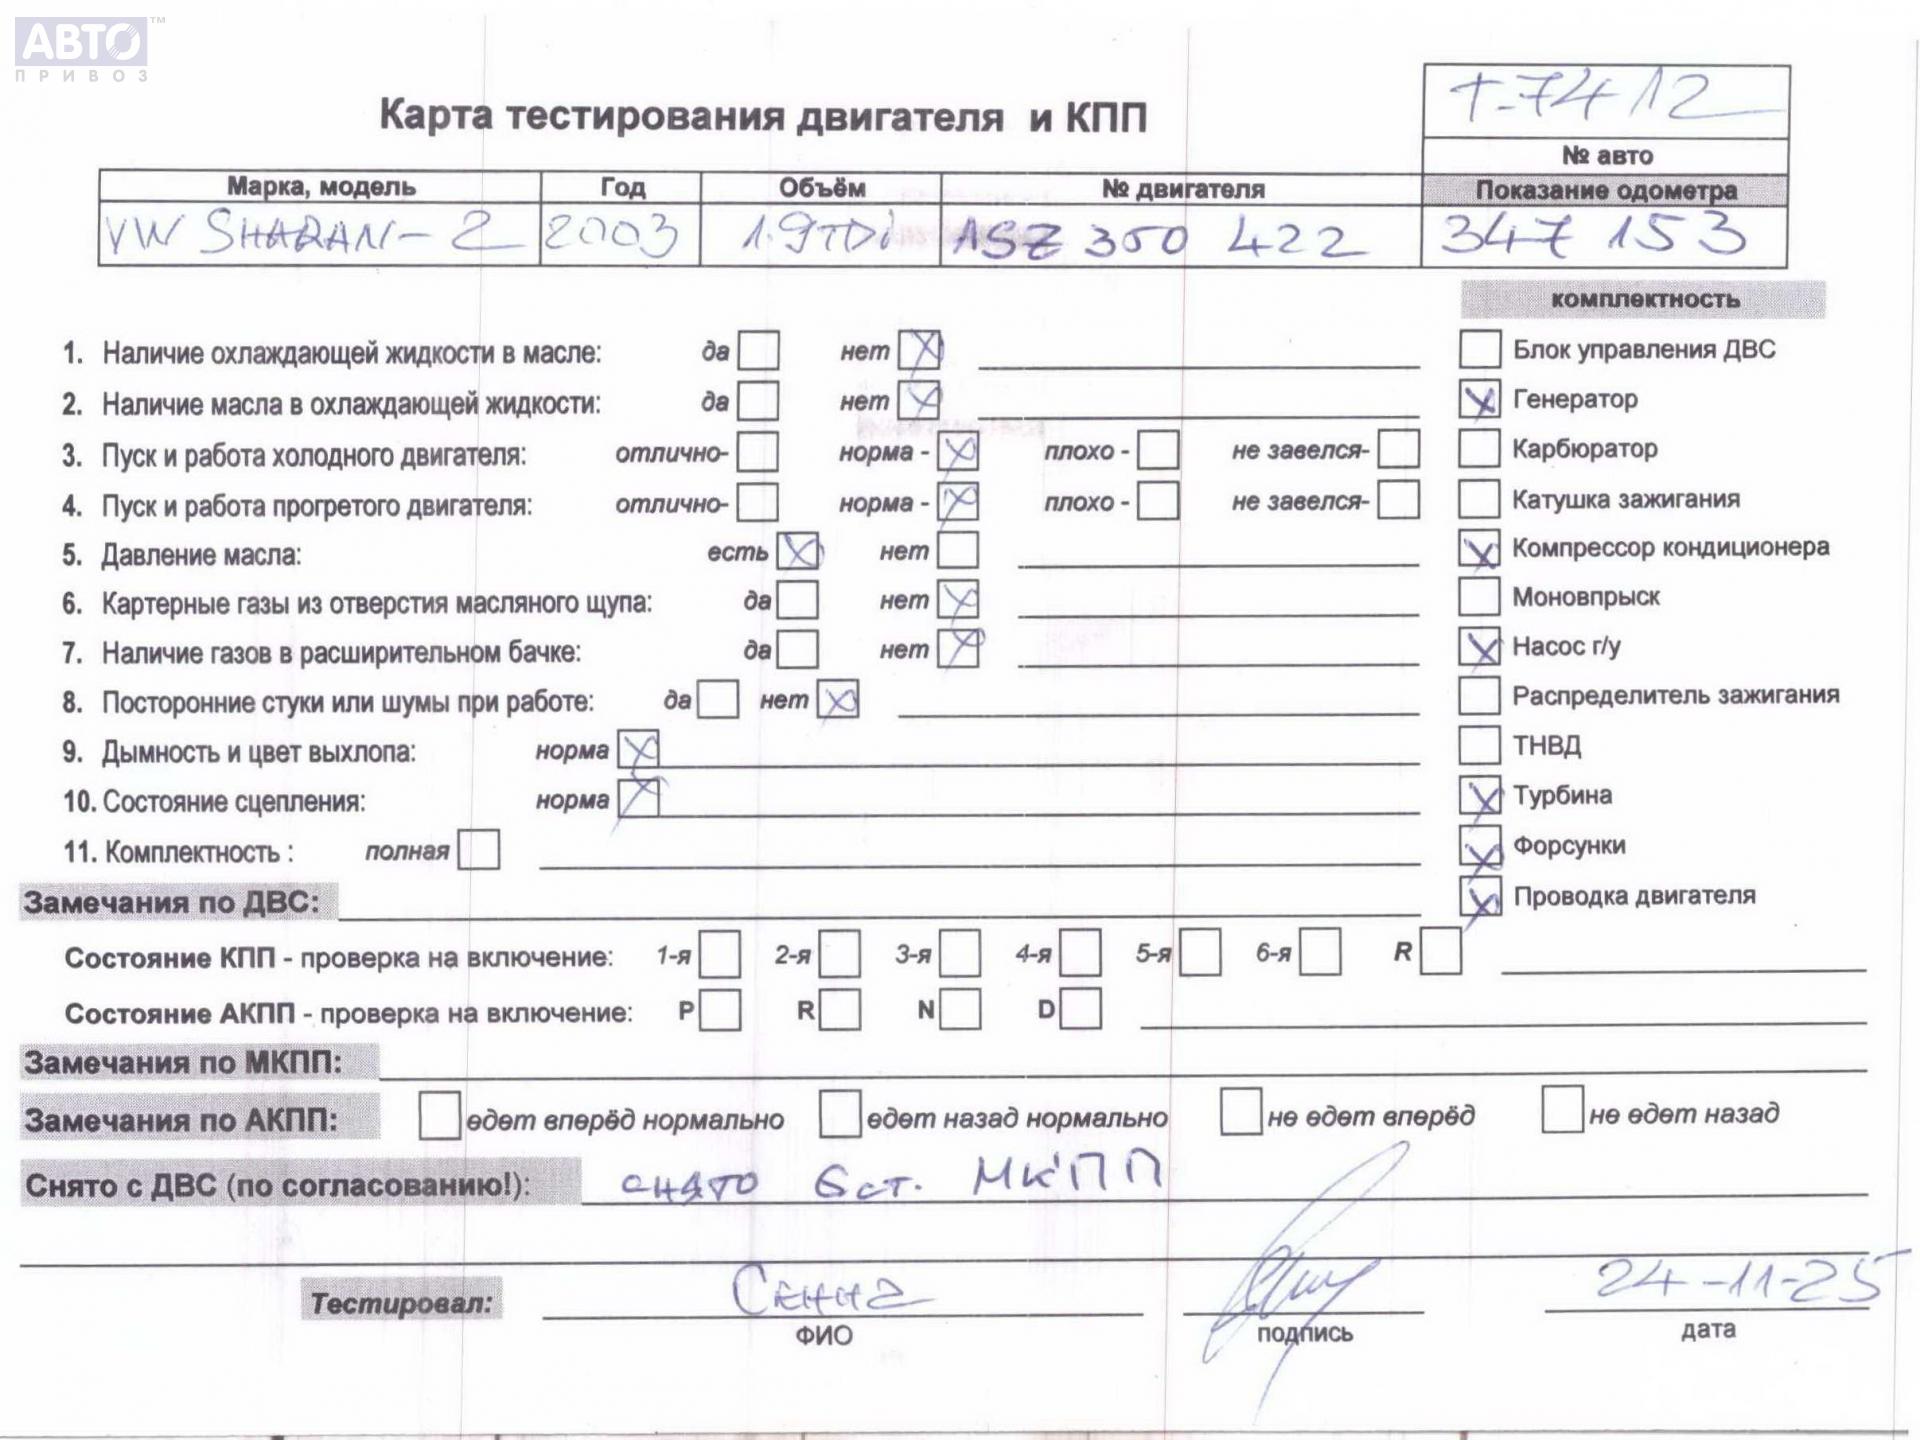 АВТО™
ПРИВОЗ
Т-7412
Карта тестирования двигателя и КПП
№ авто
Марка, модель Год Объём № двигателя Показание одометра
VW SHARAN-2 2003 1.9TDi ASZ 350 422 347 153
комплектность
1. Наличие охлаждающей жидкости в масле: да нет X Блок управления ДВС
2. Наличие масла в охлаждающей жидкости: да нет X X Генератор
3. Пуск и работа холодного двигателя: отлично- норма - X плохо - не завелся- Карбюратор
4. Пуск и работа прогретого двигателя: отлично- норма - X плохо - не завелся- Катушка зажигания
5. Давление масла: есть X нет X Компрессор кондиционера
6. Картерные газы из отверстия масляного щупа: да нет X Моновпрыск
7. Наличие газов в расширительном бачке: да нет X X Насос г/у
8. Посторонние стуки или шумы при работе: да нет X Распределитель зажигания
9. Дымность и цвет выхлопа: норма X ТНВД
10. Состояние сцепления: норма X X Турбина
11. Комплектность : полная X Форсунки
Замечания по ДВС: X Проводка двигателя
Состояние КПП - проверка на включение: 1-я 2-я 3-я 4-я 5-я 6-я R
Состояние АКПП - проверка на включение: P R N D
Замечания по МКПП:
Замечания по АКПП: едет вперёд нормально едет назад нормально не едет вперёд не едет назад
Снято с ДВС (по согласованию!): снято 6ст. МКПП
Тестировал: 24-11-25
ФИО подпись дата